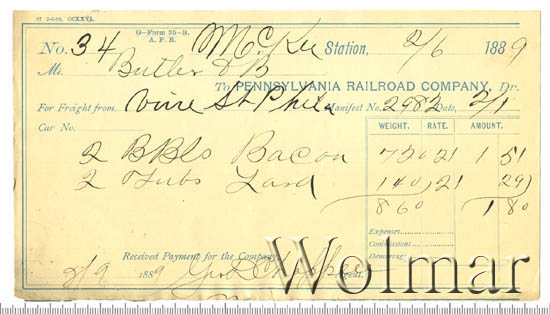 ST 2-9-88. CCXXVI.
G—Form 35—B.
A. F. R.
No. 34 McKee Station, 2/6 1889
Ms. Butler & B
To PENNSYLVANIA RAILROAD COMPANY, Dr.
For Freight from Vine St Phila Manifest No. 2982 Date, 2/1
Car No.
WEIGHT. RATE. AMOUNT.
2 BBls Bacon 720 21 1 51
2 Tubs Lard 140 21 29
860 1 80
Expenses
Commissions
Demurrage
Received Payment for the Company,
2/9 1889 Agent.
Wolmar